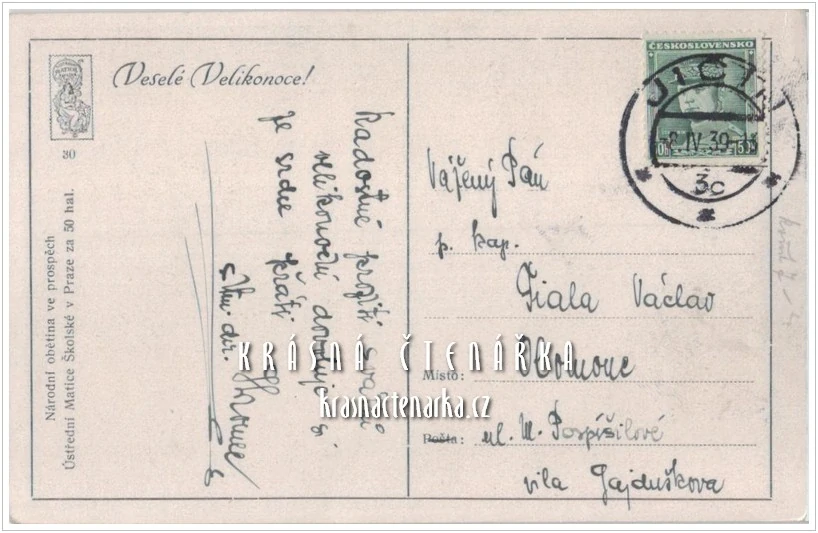 Veselé Velikonoce!
30
Národní obětina ve prospěch
Ústřední Matice Školské v Praze za 50 hal.
Radostné prožití svátků
velikonoční dovoluje si
ze srdce přáti
ČESKOSLOVENSKO
JIČÍN
IV. 39
3c
50h
Vážený Pán
p. kap.
Fiala Václav
Místo: Olomouc
Pošta: ul. M. Pospíšilové
vila Gajduškova
KRÁSNÁ ČTENÁŘKA
krasnactenarka.cz